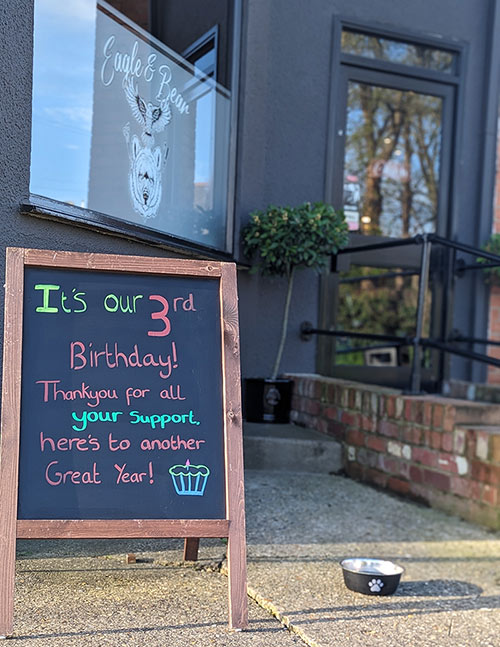 Eagle & Bear
It's our 3rd
Birthday!
Thankyou for all
your support,
here's to another
Great Year!